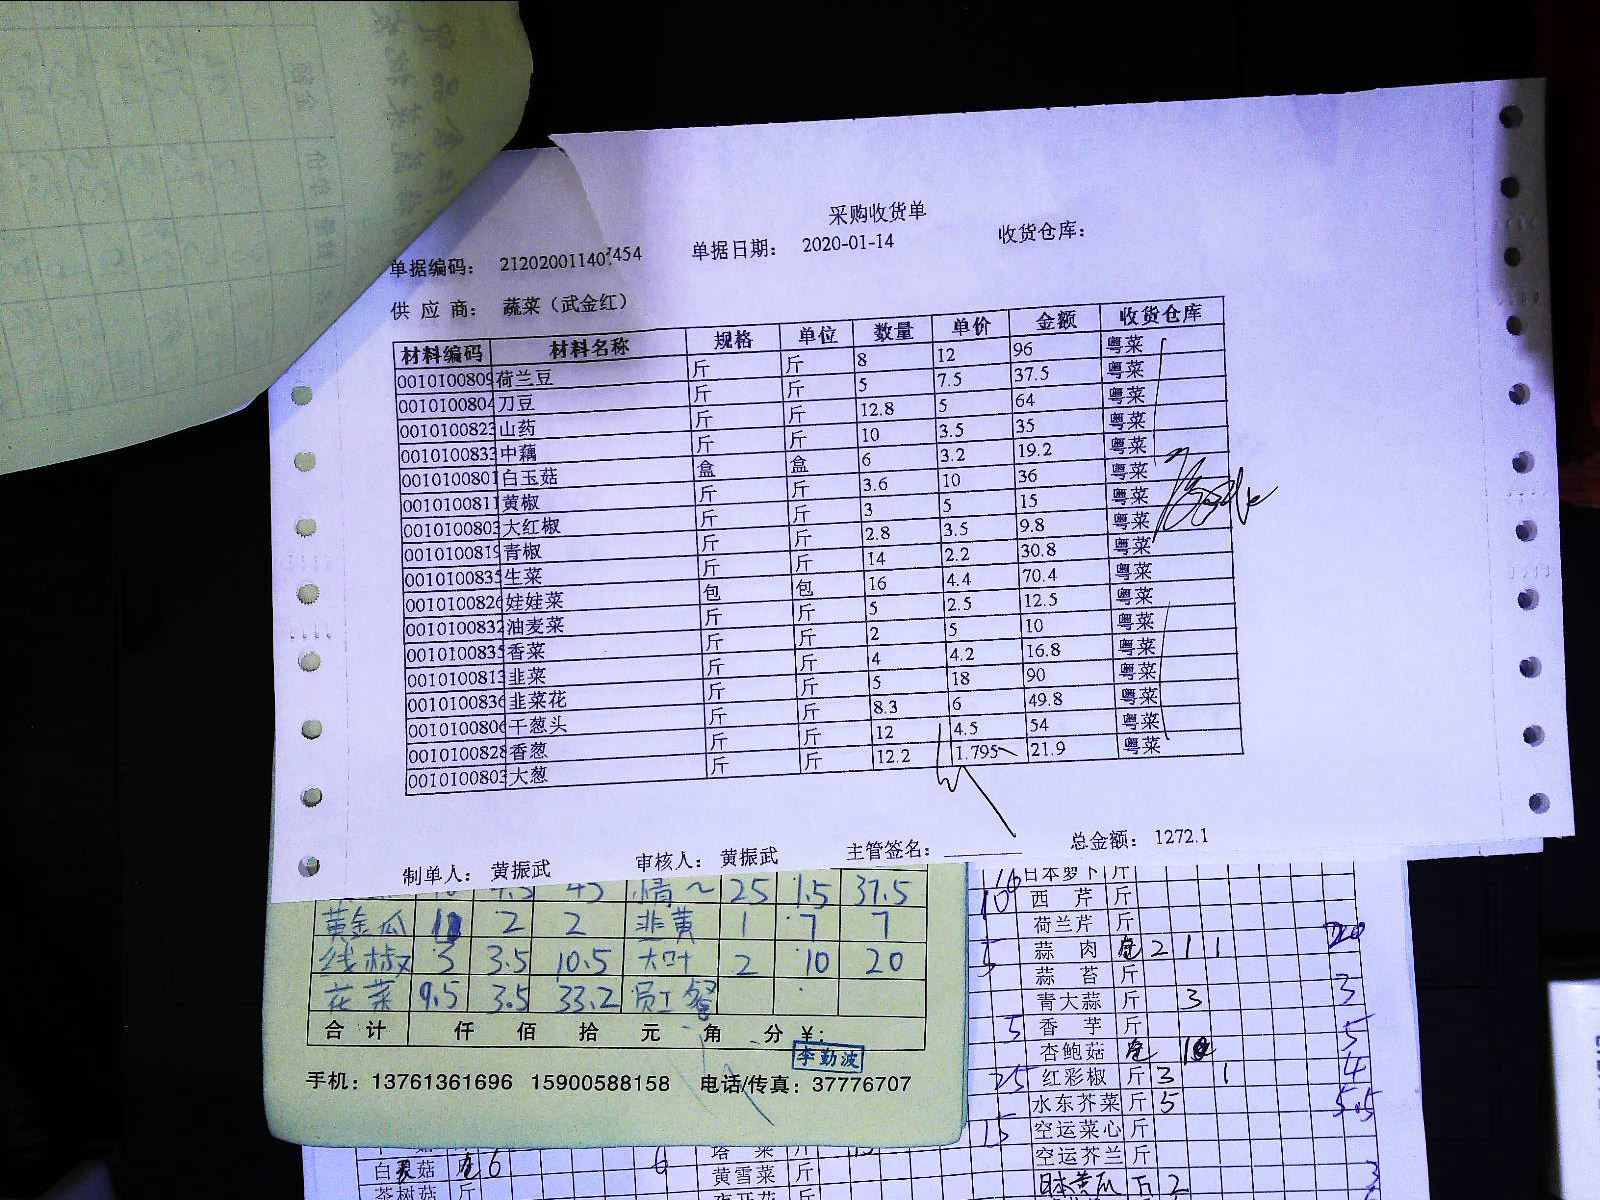 采购收货单
单据编码： 212020011407454 单据日期： 2020-01-14 收货仓库：
供应商： 蔬菜（武金红）
材料编码 材料名称 规格 单位 数量 单价 金额 收货仓库
0010100809 荷兰豆 斤 斤 8 12 96 粤菜
0010100804 刀豆 斤 斤 5 7.5 37.5 粤菜
0010100823 山药 斤 斤 12.8 5 64 粤菜
0010100833 中藕 斤 斤 10 3.5 35 粤菜
0010100801 白玉菇 盒 盒 6 3.2 19.2 粤菜
0010100811 黄椒 斤 斤 3.6 10 36 粤菜
0010100803 大红椒 斤 斤 3 5 15 粤菜
0010100819 青椒 斤 斤 2.8 3.5 9.8 粤菜
0010100835 生菜 斤 斤 14 2.2 30.8 粤菜
0010100826 娃娃菜 包 包 16 4.4 70.4 粤菜
0010100832 油麦菜 斤 斤 5 2.5 12.5 粤菜
0010100835 香菜 斤 斤 2 5 10 粤菜
0010100813 韭菜 斤 斤 4 4.2 16.8 粤菜
0010100836 韭菜花 斤 斤 5 18 90 粤菜
0010100806 干葱头 斤 斤 8.3 6 49.8 粤菜
0010100828 香葱 斤 斤 12 4.5 54 粤菜
0010100803 大葱 斤 斤 12.2 1.795 21.9 粤菜
制单人： 黄振武 审核人： 黄振武 主管签名： 总金额： 1272.1
25 1.5 37.5
黄金瓜 2 2 韭黄 1 7 7
线椒 3 3.5 10.5 大叶 2 10 20
花菜 9.5 3.5 33.2 员工餐
合计 仟 佰 拾 元 角 分 ¥：
李勤波
手机：13761361696 15900588158 电话/传真：37776707
日本萝卜 斤
10 西芹 斤
荷兰芹 斤
5 蒜肉 2 1 1 20
蒜苔 斤
青大蒜 斤 3 3
5 香芋 斤 5
杏鲍菇
25 红彩椒 斤 3 1 4
水东芥菜 斤 5 5.5
15 空运菜心 斤
空运芥兰 斤
日本黄瓜 斤 2 3
菇 6 6
黄雪菜 斤
茶树菇 斤